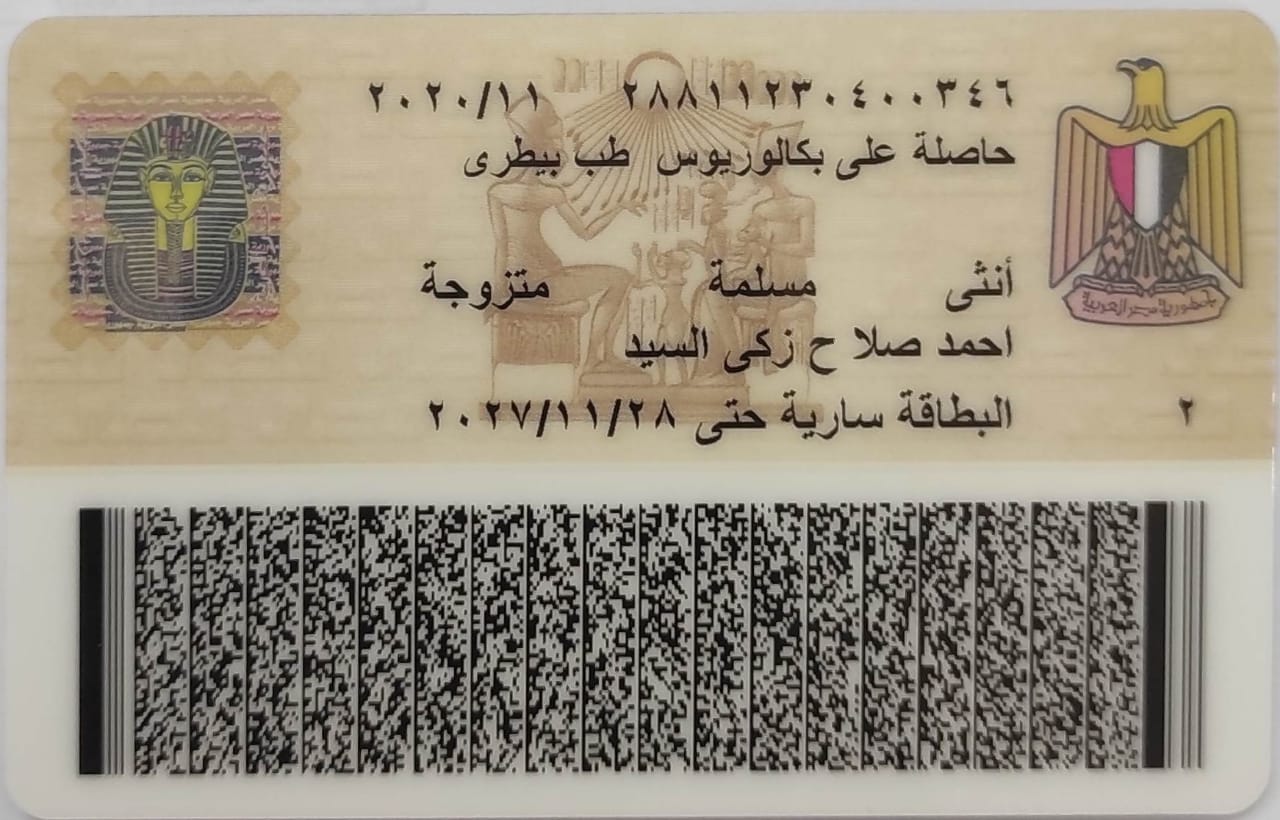 ٢٨٨١١٢٣٠٤٠٠٣٤٦ ٢٠٢٠/١١
حاصلة على بكالوريوس طب بيطرى
أنثى مسلمة متزوجة
احمد صلاح زكى السيد
البطاقة سارية حتى ٢٠٢٧/١١/٢٨
٢
جمهورية مصر العربية